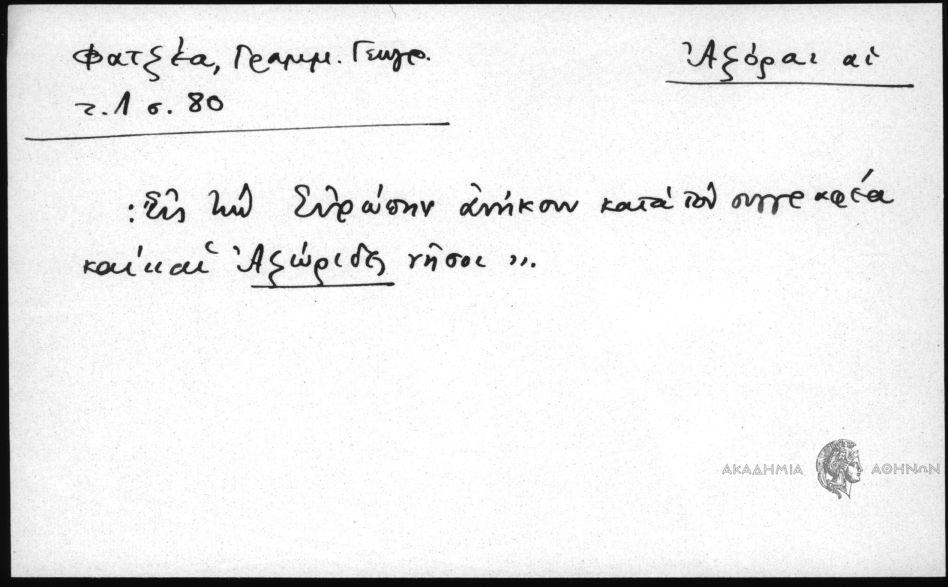 Φατζέα, Γραμμ. Γεωγρ.
Ἀξόραι αἱ
τ. 1 σ. 80
: Εἰς τὴν Εὐρώπην ἀνήκουν κατὰ τὸν συγγραφέα
καὶ αἱ Ἀξώριδες νῆσοι ».
ΑΚΑΔΗΜΙΑ ΑΘΗΝΩΝ